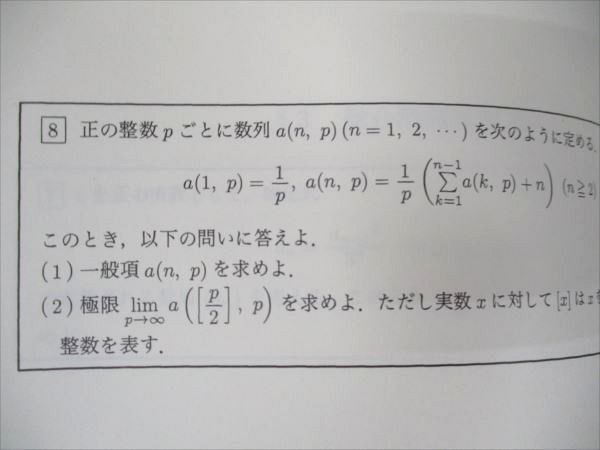 8 正の整数 p ごとに数列 a(n, p) (n = 1, 2, ⋯) を次のように定める.
a(1, p) = 1/p, a(n, p) = 1/p (∑_{k=1}^{n−1} a(k, p) + n) (n ≧ 2)
このとき, 以下の問いに答えよ.
(1) 一般項 a(n, p) を求めよ.
(2) 極限 lim_{p→∞} a([p/2], p) を求めよ. ただし実数 x に対して [x] は x
整数を表す.